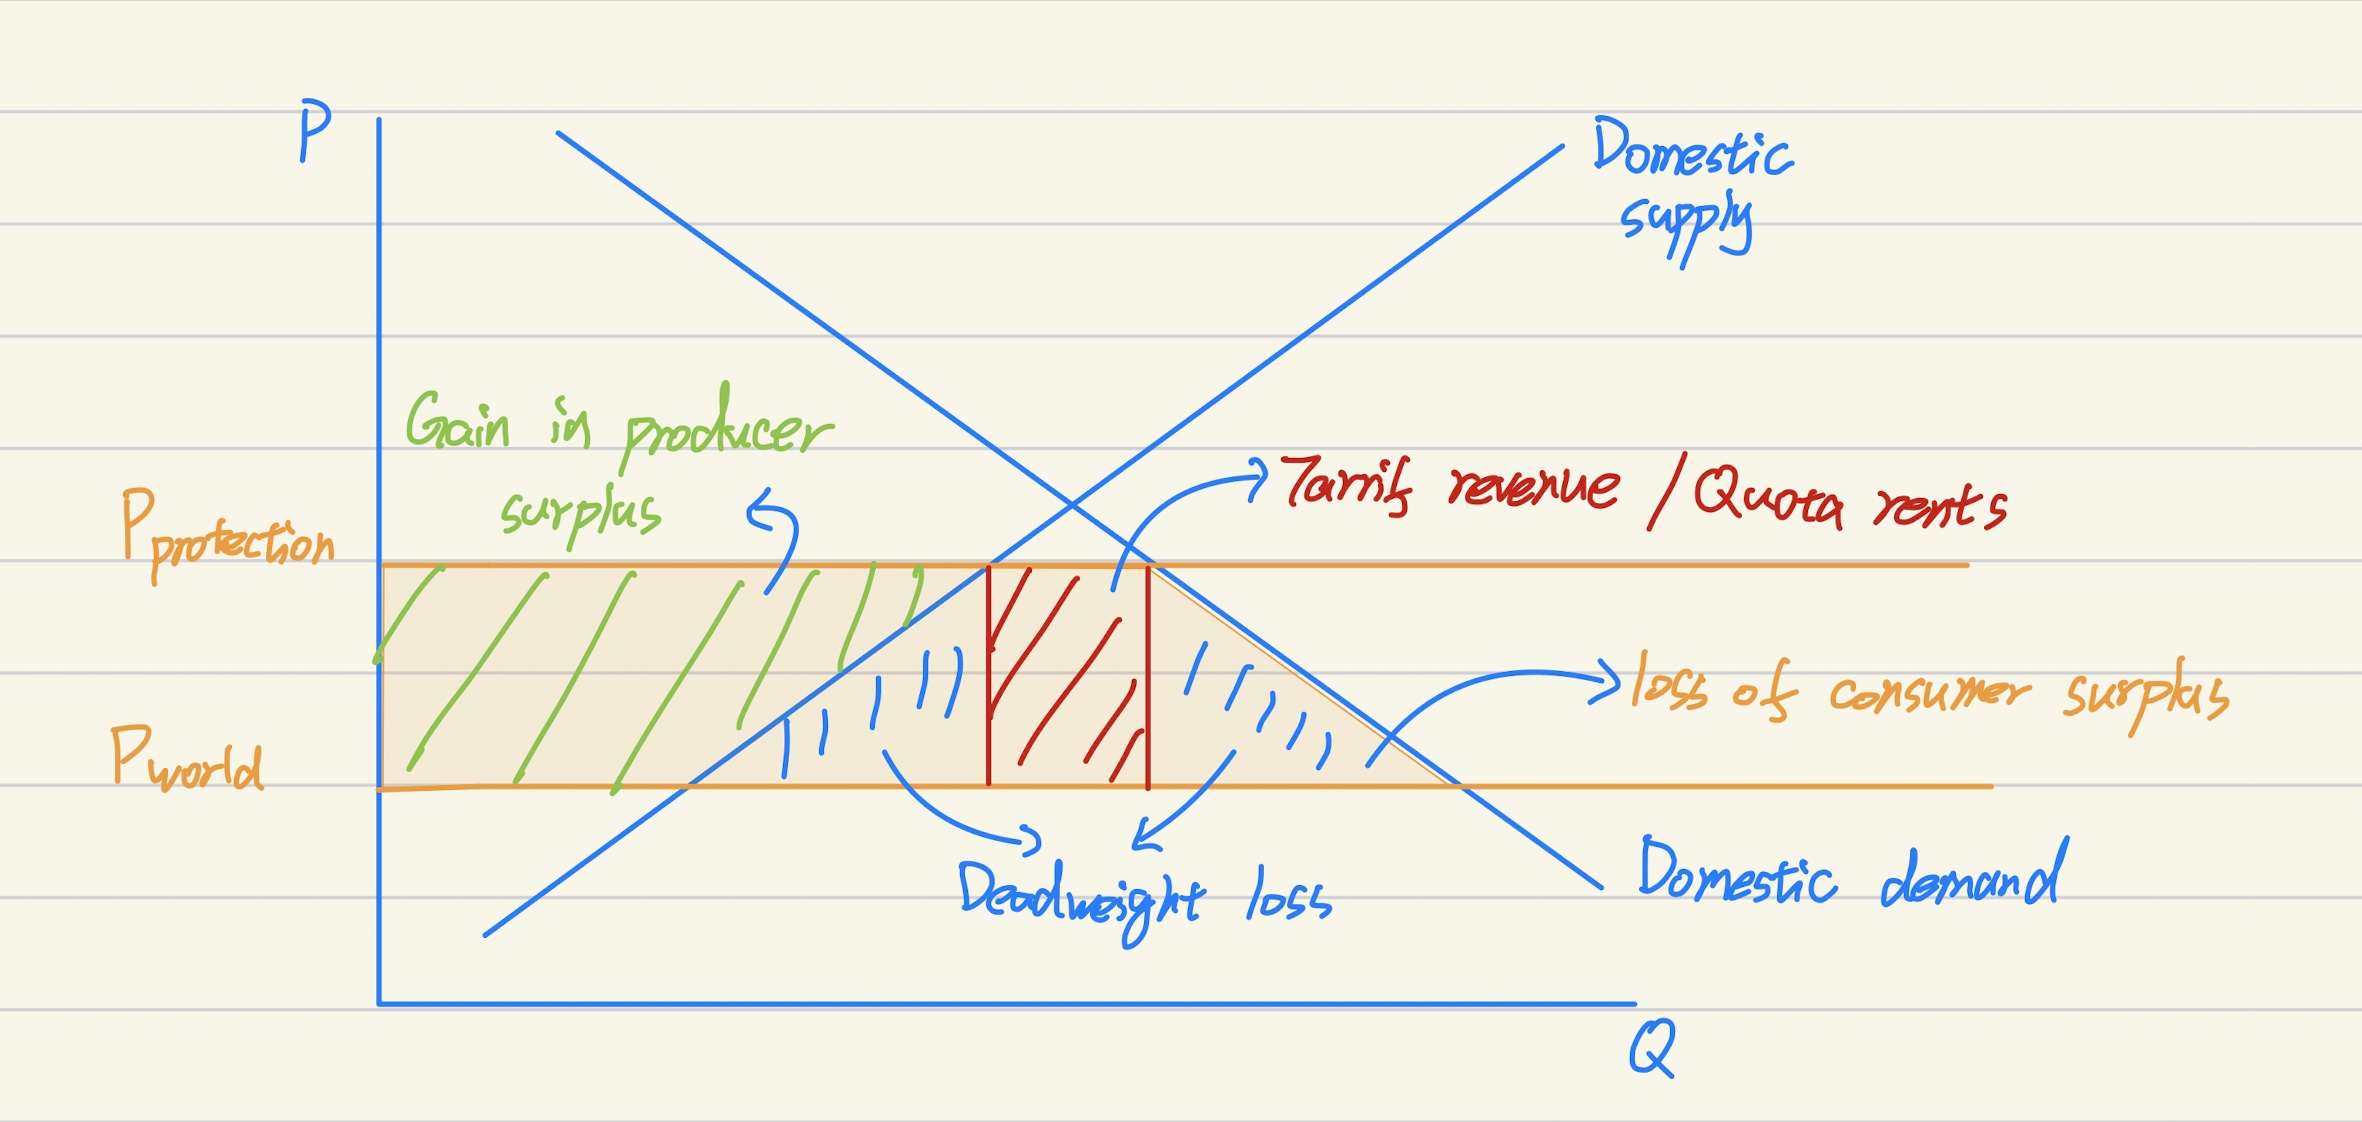 P
Domestic
supply
Gain in producer
surplus
Tarrif revenue / Quota rents
P protection
loss of consumer surplus
P world
Deadweight loss
Domestic demand
Q